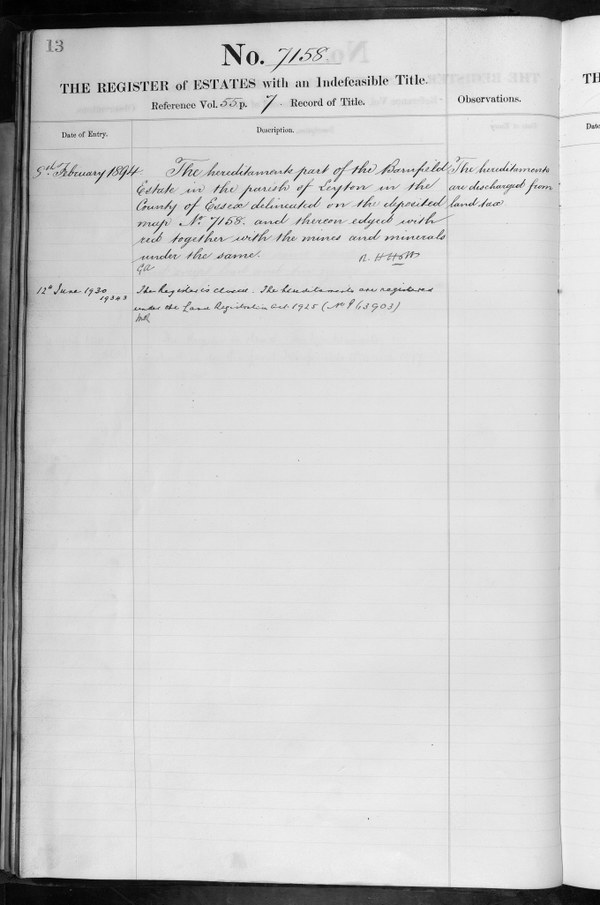 13
No. 7158.
THE REGISTER of ESTATES with an Indefeasible Title.
Reference Vol. 55 p. 7. Record of Title.
Observations.
Date of Entry.
Description.
February 1894.
The hereditaments part of the Barnfield
Estate in the parish of Leyton in the
County of Essex delineated on the deposited
map No. 7158. and thereon edged with
red together with the mines and minerals
under the same.
The hereditaments
are discharged from
land tax.
12th June 1930
19303
The Register is closed. The hereditaments are registered
under the Land Registration Act 1925 (No P 63903)
TH
Dat